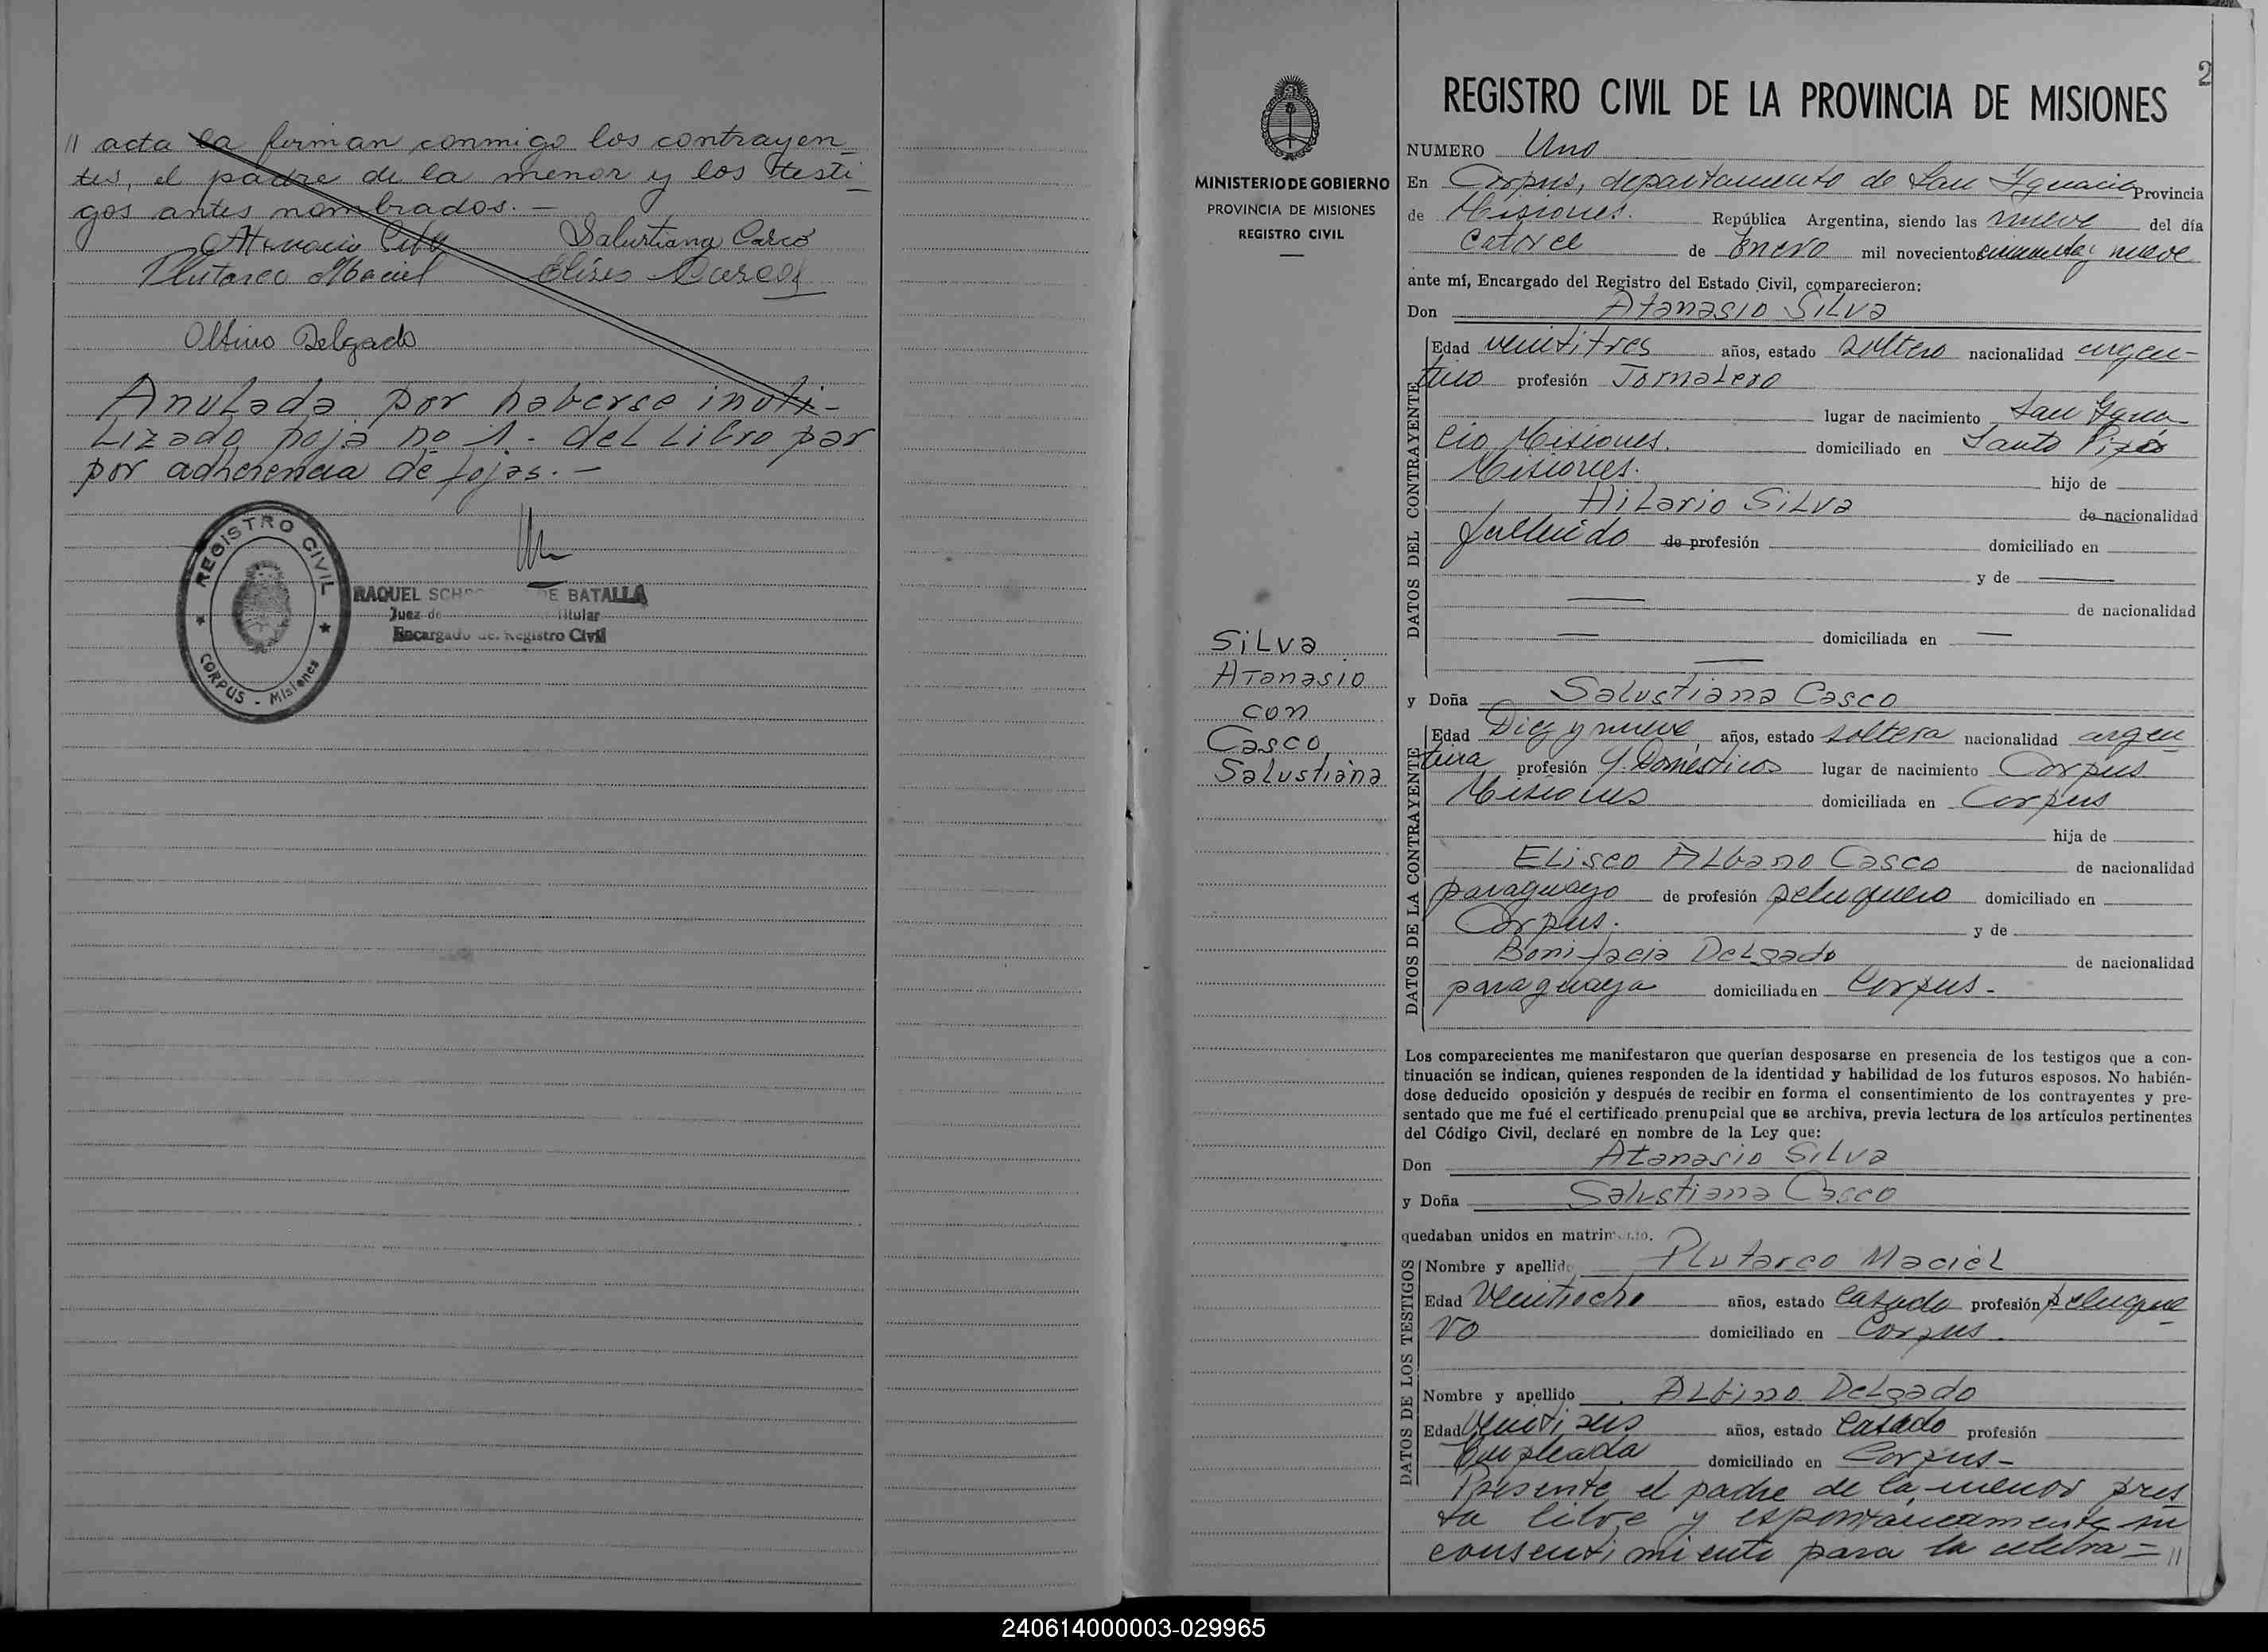 // acta la firman conmigo los contrayen-
tes, el padre de la menor y los testi-
gos antes nombrados. -
Salustiana Casco
Plutarco Maciel
Albino Delgado
Anulada por haberse inuti-
lizado hoja no 1. del Libro par
por adherencia de fojas. -
REGISTRO CIVIL
CORPUS - Misiones
RAQUEL DE BATALLA
Juez de Titular
Encargado del Registro Civil
2
REGISTRO CIVIL DE LA PROVINCIA DE MISIONES
MINISTERIO DE GOBIERNO
PROVINCIA DE MISIONES
REGISTRO CIVIL
Silva
Atanasio
con
Casco
Salustiana
NUMERO Uno
En Corpus, departamento de San Ignacio Provincia
de Misiones. República Argentina, siendo las nueve del día
catorce de Enero mil novecientos cincuenta y nueve
ante mí, Encargado del Registro del Estado Civil, comparecieron:
Don Atanasio Silva
DATOS DEL CONTRAYENTE
Edad veintitres años, estado soltero nacionalidad argen-
tino profesión Jornalero
lugar de nacimiento San Igna
cio Misiones. domiciliado en Santo Pipó
Misiones. hijo de
Hilario Silva de nacionalidad
fallecido de profesión domiciliado en
y de
de nacionalidad
domiciliada en
y Doña Salustiana Casco
DATOS DE LA CONTRAYENTE
Edad Diez y nueve años, estado soltera nacionalidad argen
tina profesión Q. Domésticos lugar de nacimiento Corpus
Misiones domiciliada en Corpus
hija de
Eliseo Albano Casco de nacionalidad
paraguayo de profesión peluquero domiciliado en
Corpus. y de
Bonifacia Delgado de nacionalidad
paraguaya domiciliada en Corpus -
Los comparecientes me manifestaron que querían desposarse en presencia de los testigos que a con-
tinuación se indican, quienes responden de la identidad y habilidad de los futuros esposos. No habién-
dose deducido oposición y después de recibir en forma el consentimiento de los contrayentes y pre-
sentado que me fué el certificado prenupcial que se archiva, previa lectura de los artículos pertinentes
del Código Civil, declaré en nombre de la Ley que:
Don Atanasio Silva
y Doña Salustiana Casco
quedaban unidos en matrimonio.
DATOS DE LOS TESTIGOS
Nombre y apellido Plutarco Maciel
Edad Veintiocho años, estado casado profesión peluque
ro domiciliado en Corpus.
Nombre y apellido Albino Delgado
Edad Veintiseis años, estado Casado profesión
Empleado domiciliado en Corpus -
Presente el padre de la menor pres
ta libre y espontaneamente su
consentimiento para la celebra= //
240614000003-029965